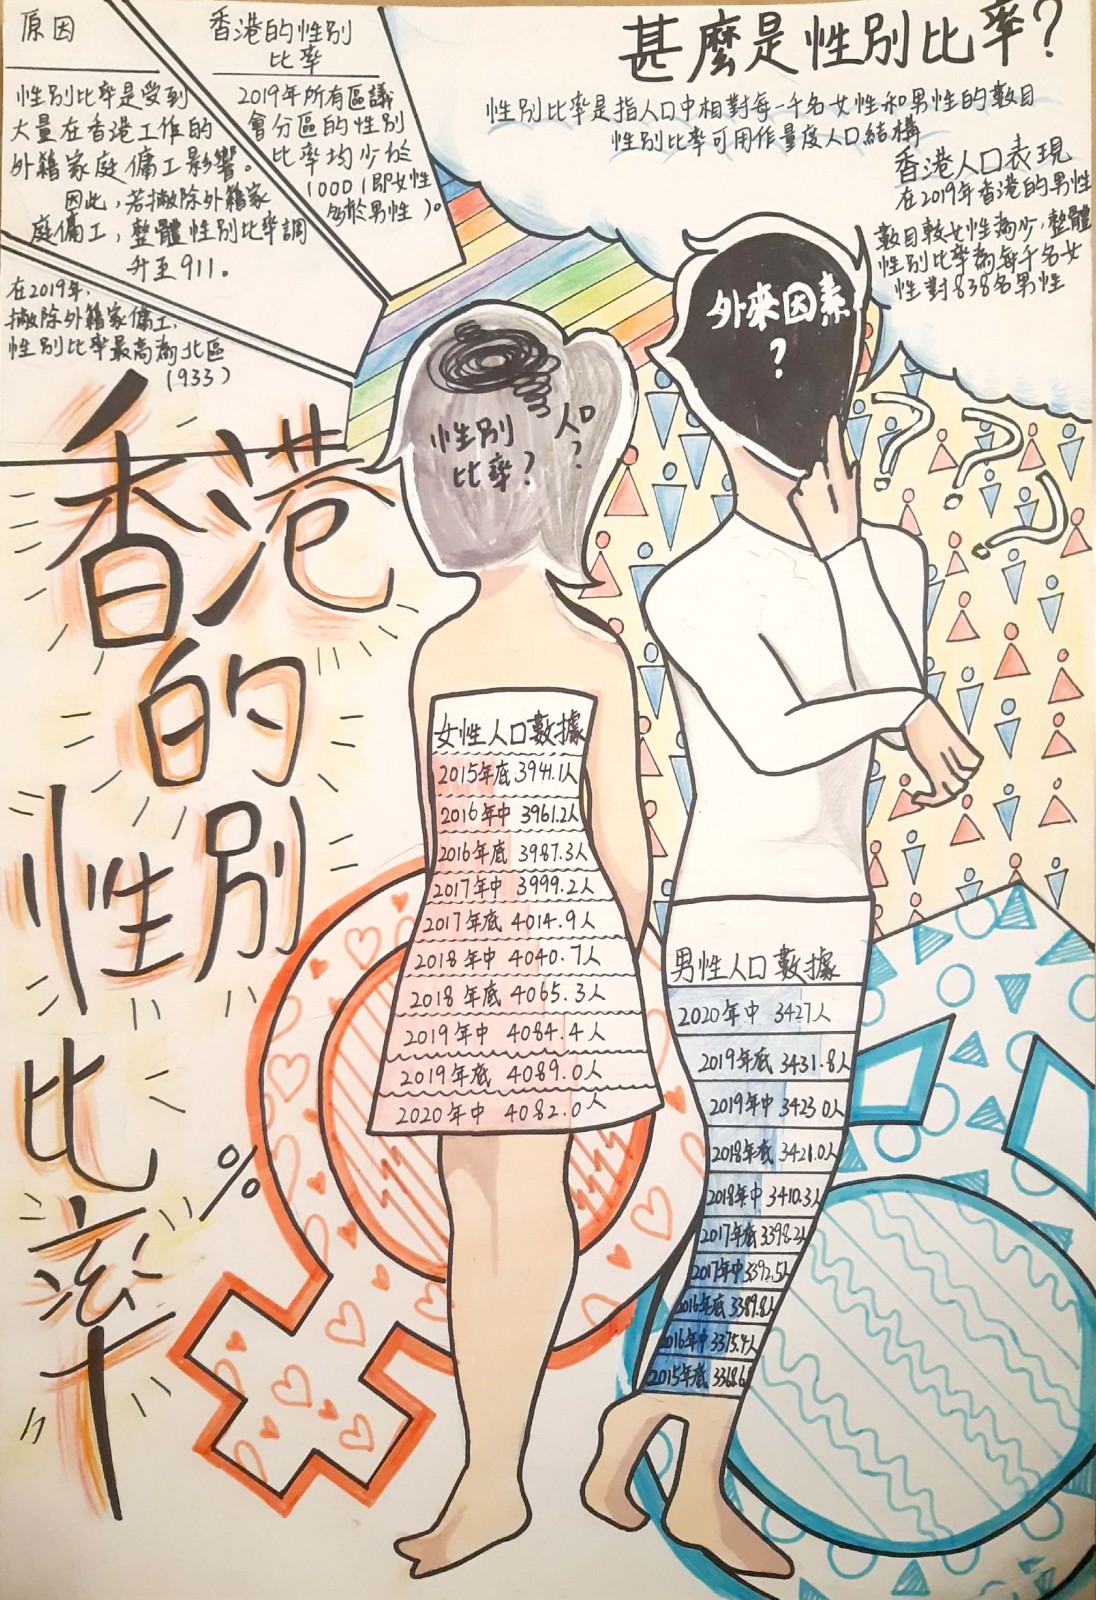 原因
性別比率是受到
大量在香港工作的
外籍家庭傭工影響。
因此，若撇除外籍家
庭傭工，整體性別比率調
升至911。
在2019年，
撇除外籍家傭工，
性別比率最高為北區
(933)
香港的性別
比率
2019年所有區議
會分區的性別
比率均少於
1000(即女性
多於男性)。
甚麼是性別比率？
性別比率是指人口中相對每一千名女性和男性的數目
性別比率可用作量度人口結構
香港人口表現
在2019年香港的男性
數目較女性為少，整體
性別比率為每千名女
性對838名男性
香港
的
性別
比
率
%
性別
比率？
人口
？
外來因素
？
女性人口數據
2015年底 3941.1人
2016年中 3961.2人
2016年底 3987.3人
2017年中 3999.2人
2017年底 4014.9人
2018年中 4040.7人
2018年底 4065.3人
2019年中 4084.4人
2019年底 4089.0人
2020年中 4082.0人
男性人口數據
2020年中 3427人
2019年底 3431.8人
2019年中 3423.0人
2018年底 3421.0人
2018年中 3410.3人
2017年底 3398.2人
2017年中 3392.5人
2016年底 3389.8人
2016年中 3375.4人
2015年底 3368.6